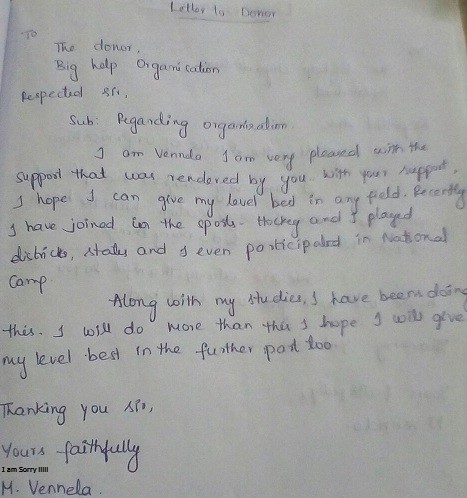 Letter to Donor
To
The donor,
Big help Organisation
Respected sir,
Sub: Regarding organisation.
I am Vennela. I am very pleased with the
support that was rendered by you. With your support,
I hope I can give my level best in any field. Recently
I have joined in the sports- Hockey and I played
districts, states and I even participated in National
Camp.
Along with my studies, I have been doing
this. I will do more than this I hope I will give
my level best in the further part too.
Thanking you sir,
Yours faithfully
I am Sorry !!!!!
M. Vennela.